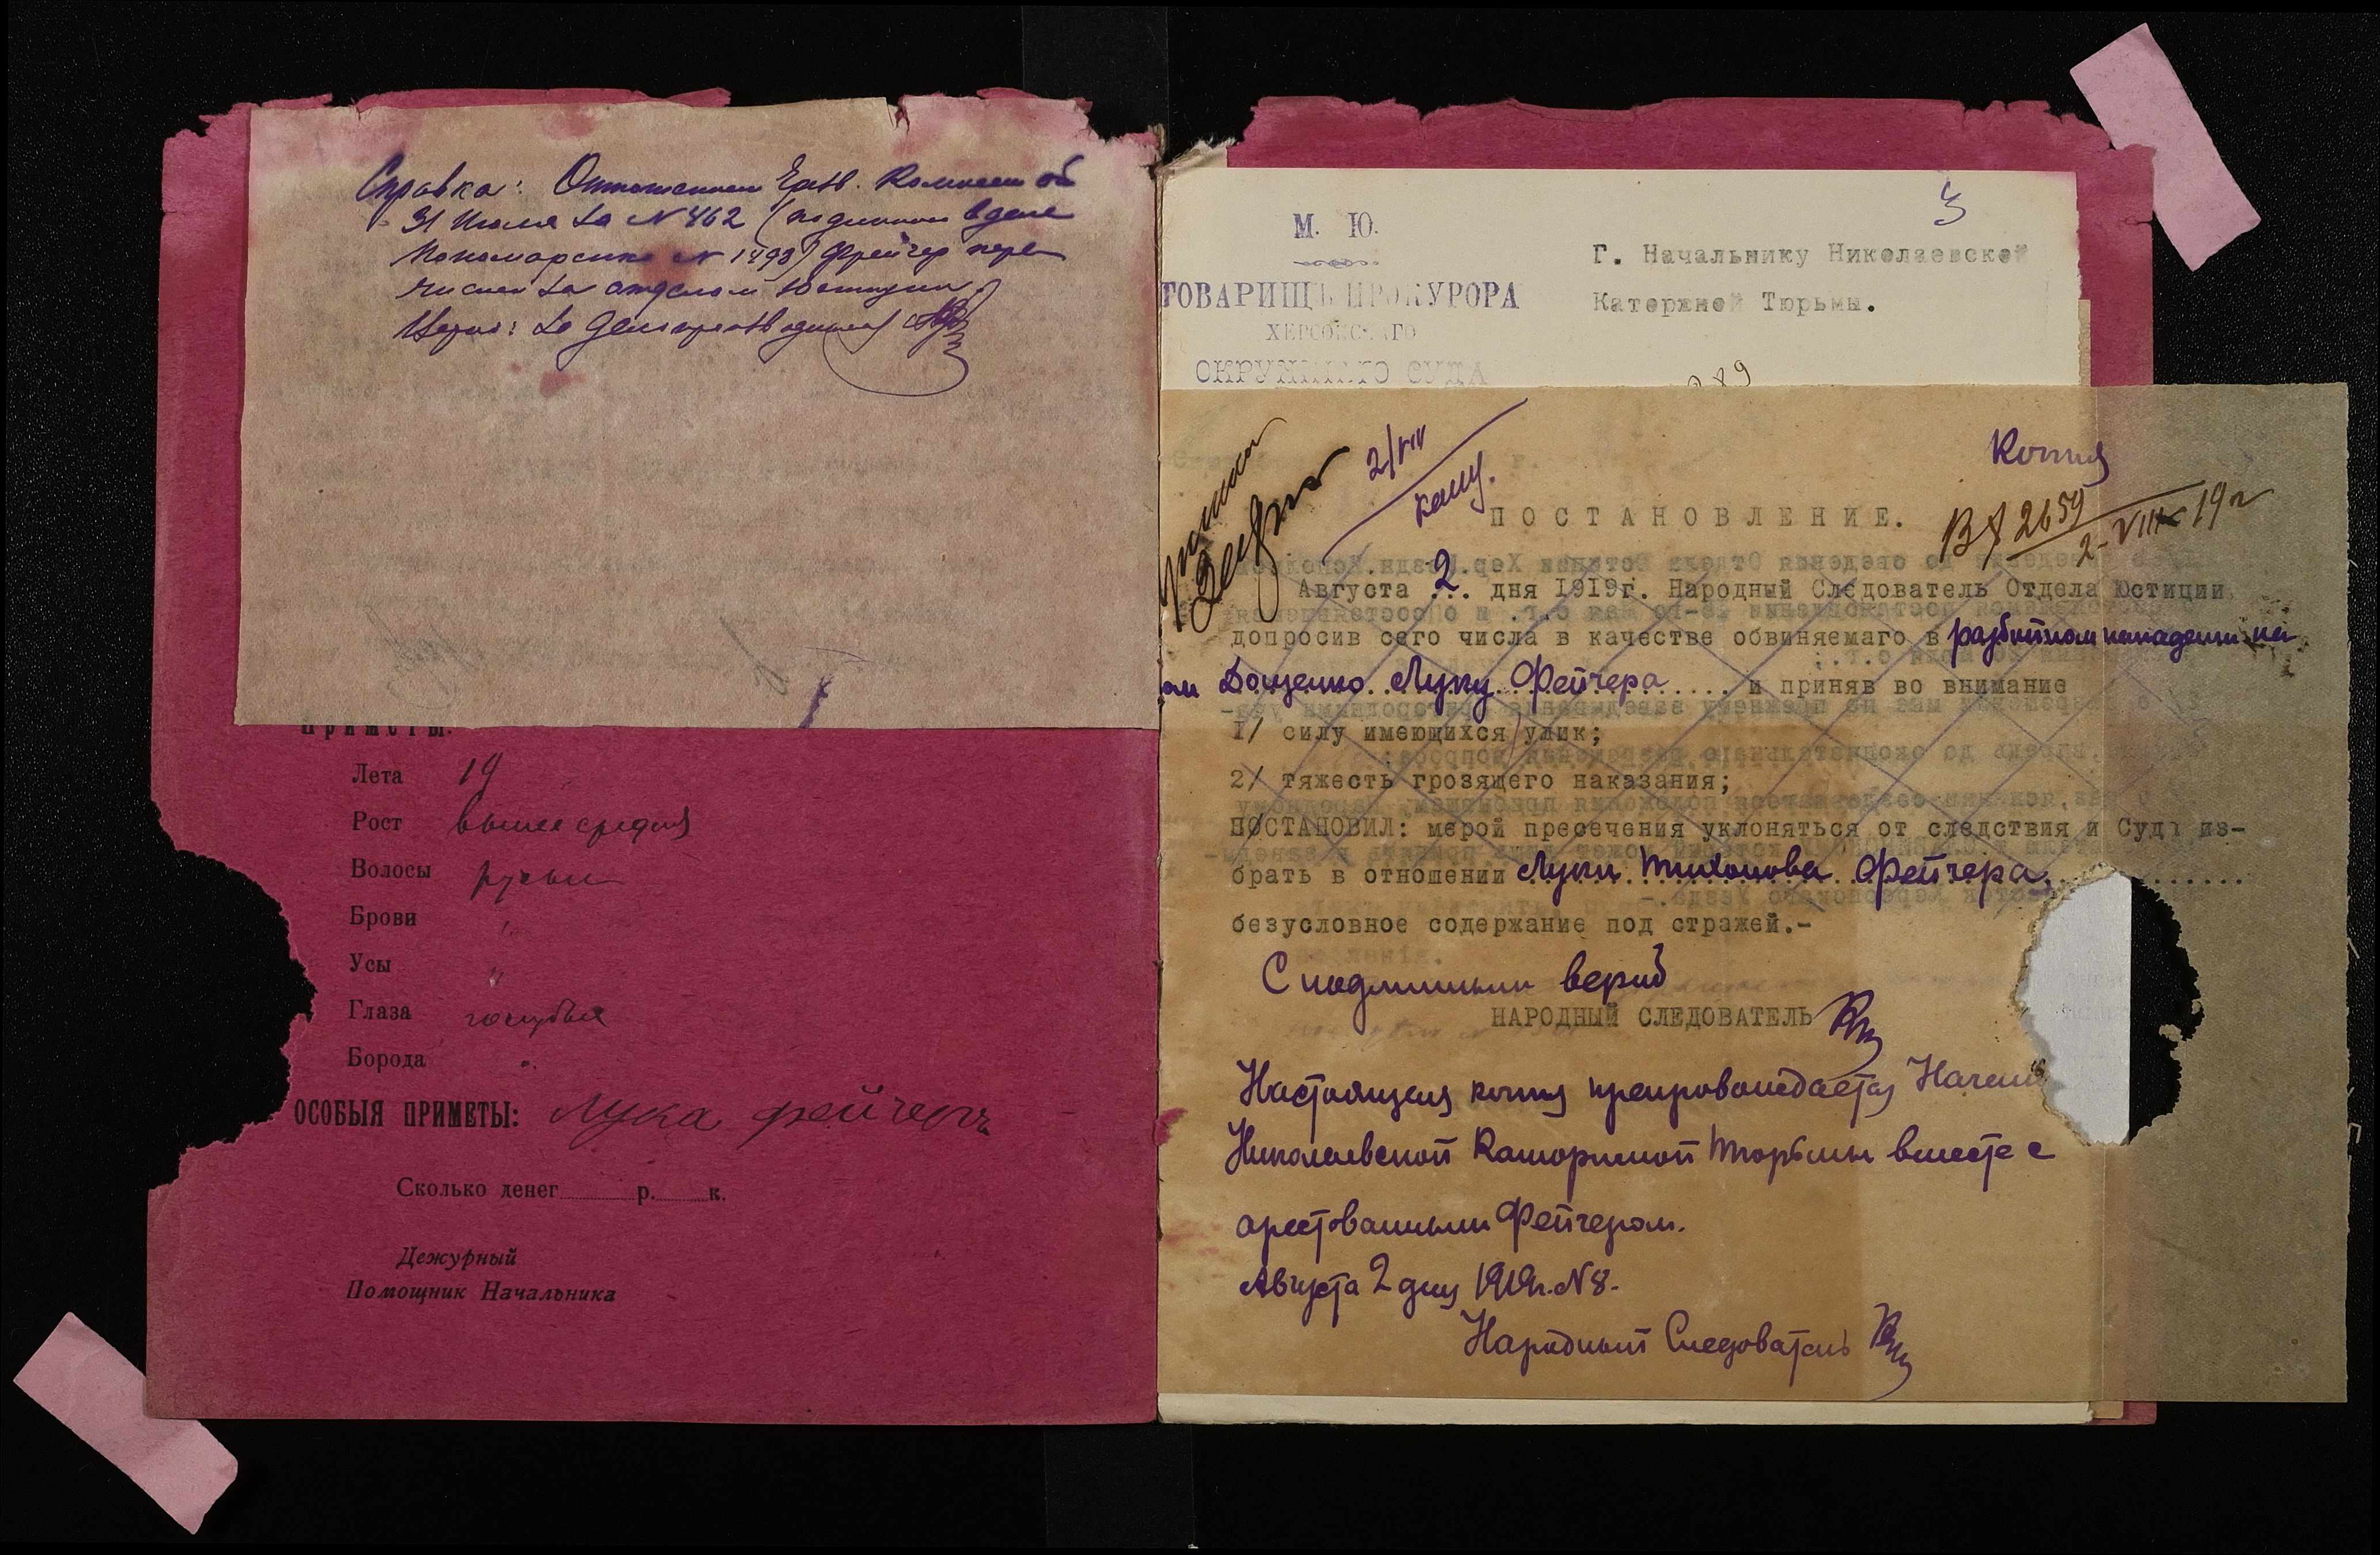 Справка: Отношением Комисии об
31 Июля за N 462 (подлинное в деле
Пономаренко N 1493) Фрейчер пере
числен за отделом Юстиции
Верно: За Делопроизводителя
Приметы:
Лета 19
Рост выше средня
Волосы русые
Брови "
Усы "
Глаза голубые
Борода "
ОСОБЫЯ ПРИМЕТЫ: Лука Фейчеръ
Сколько денег р. к.
Дежурный
Помощник Начальника
3
М. Ю.
ТОВАРИЩЪ ПРОКУРОРА
ХЕРСОНСКАГО
ОКРУЖНАГО СУДА
Г. Начальнику Николаевской
Каторжной Тюрьмы.
2/VIII
Копия
ПОСТАНОВЛЕНИЕ.
Вх 2659
2-VIII 19 г
Августа 2 дня 1919г. Народный Следователь Отдела Юстиции
допросив сего числа в качестве обвиняемаго в разбойном нападении на
Доценко Луку Фейчера и приняв во внимание
1/ силу имеющихся улик;
2/ тяжесть грозящего наказания;
ПОСТАНОВИЛ: мерой пресечения уклоняться от следствия и Суда из-
брать в отношении Луки Тихонова Фейчера
безусловное содержание под стражей.-
С подлинным верно
НАРОДНЫЙ СЛЕДОВАТЕЛЬ
Настоящая копия препровождается Начал
Николаевской Каторжной Тюрьмы вместе с
арестованным Фейчером.
Августа 2 дня 1919г. N 8.
Народный Следователь